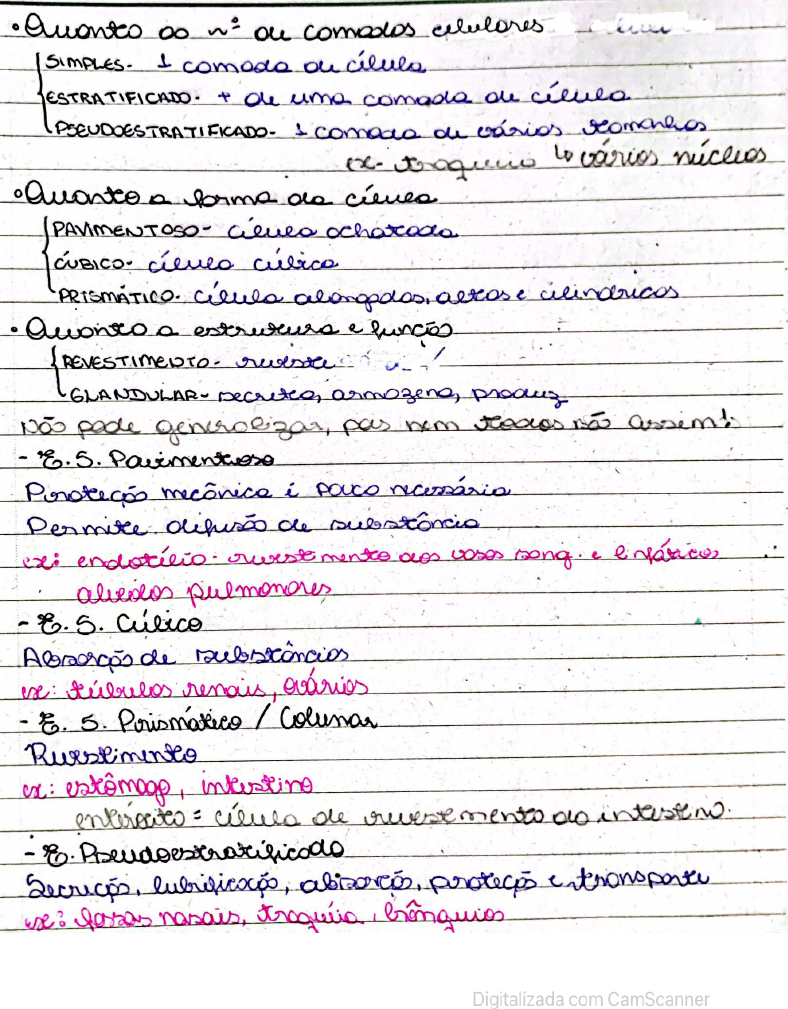 • Quanto ao nº de camadas celulares
SIMPLES - 1 camada de célula
ESTRATIFICADO - + de uma camada de célula
PSEUDOESTRATIFICADO - 1 camada de vários tamanhos
ex - traqueia ↳ vários núcleos
• Quanto a forma da célula
PAVIMENTOSO - célula achatada
CÚBICO - célula cúbica
PRISMÁTICO - célula alongadas, altas e cilindricas
• Quanto a estrutura e função
REVESTIMENTO - reveste
GLANDULAR - secreta, armazena, produz
Não pode generalizar, pois nem todos são assim!
- E. S. Pavimentoso
Proteção mecânica é pouco necessária
Permite difusão de substância
ex: endotélio - revestimento dos vasos sang. e linfáticos
alvéolos pulmonares
- E. S. Cúbico
Absorção de substâncias
ex: túbulos renais, ovários
- E. S. Prismático / Colunar
Revestimento
ex: estômago, intestino
enterócito = célula de revestimento do intestino.
- E. Pseudoestratificado
Secreção, lubrificação, absorção, proteção e transporte
ex: fossas nasais, traquéia, brônquios
Digitalizada com CamScanner